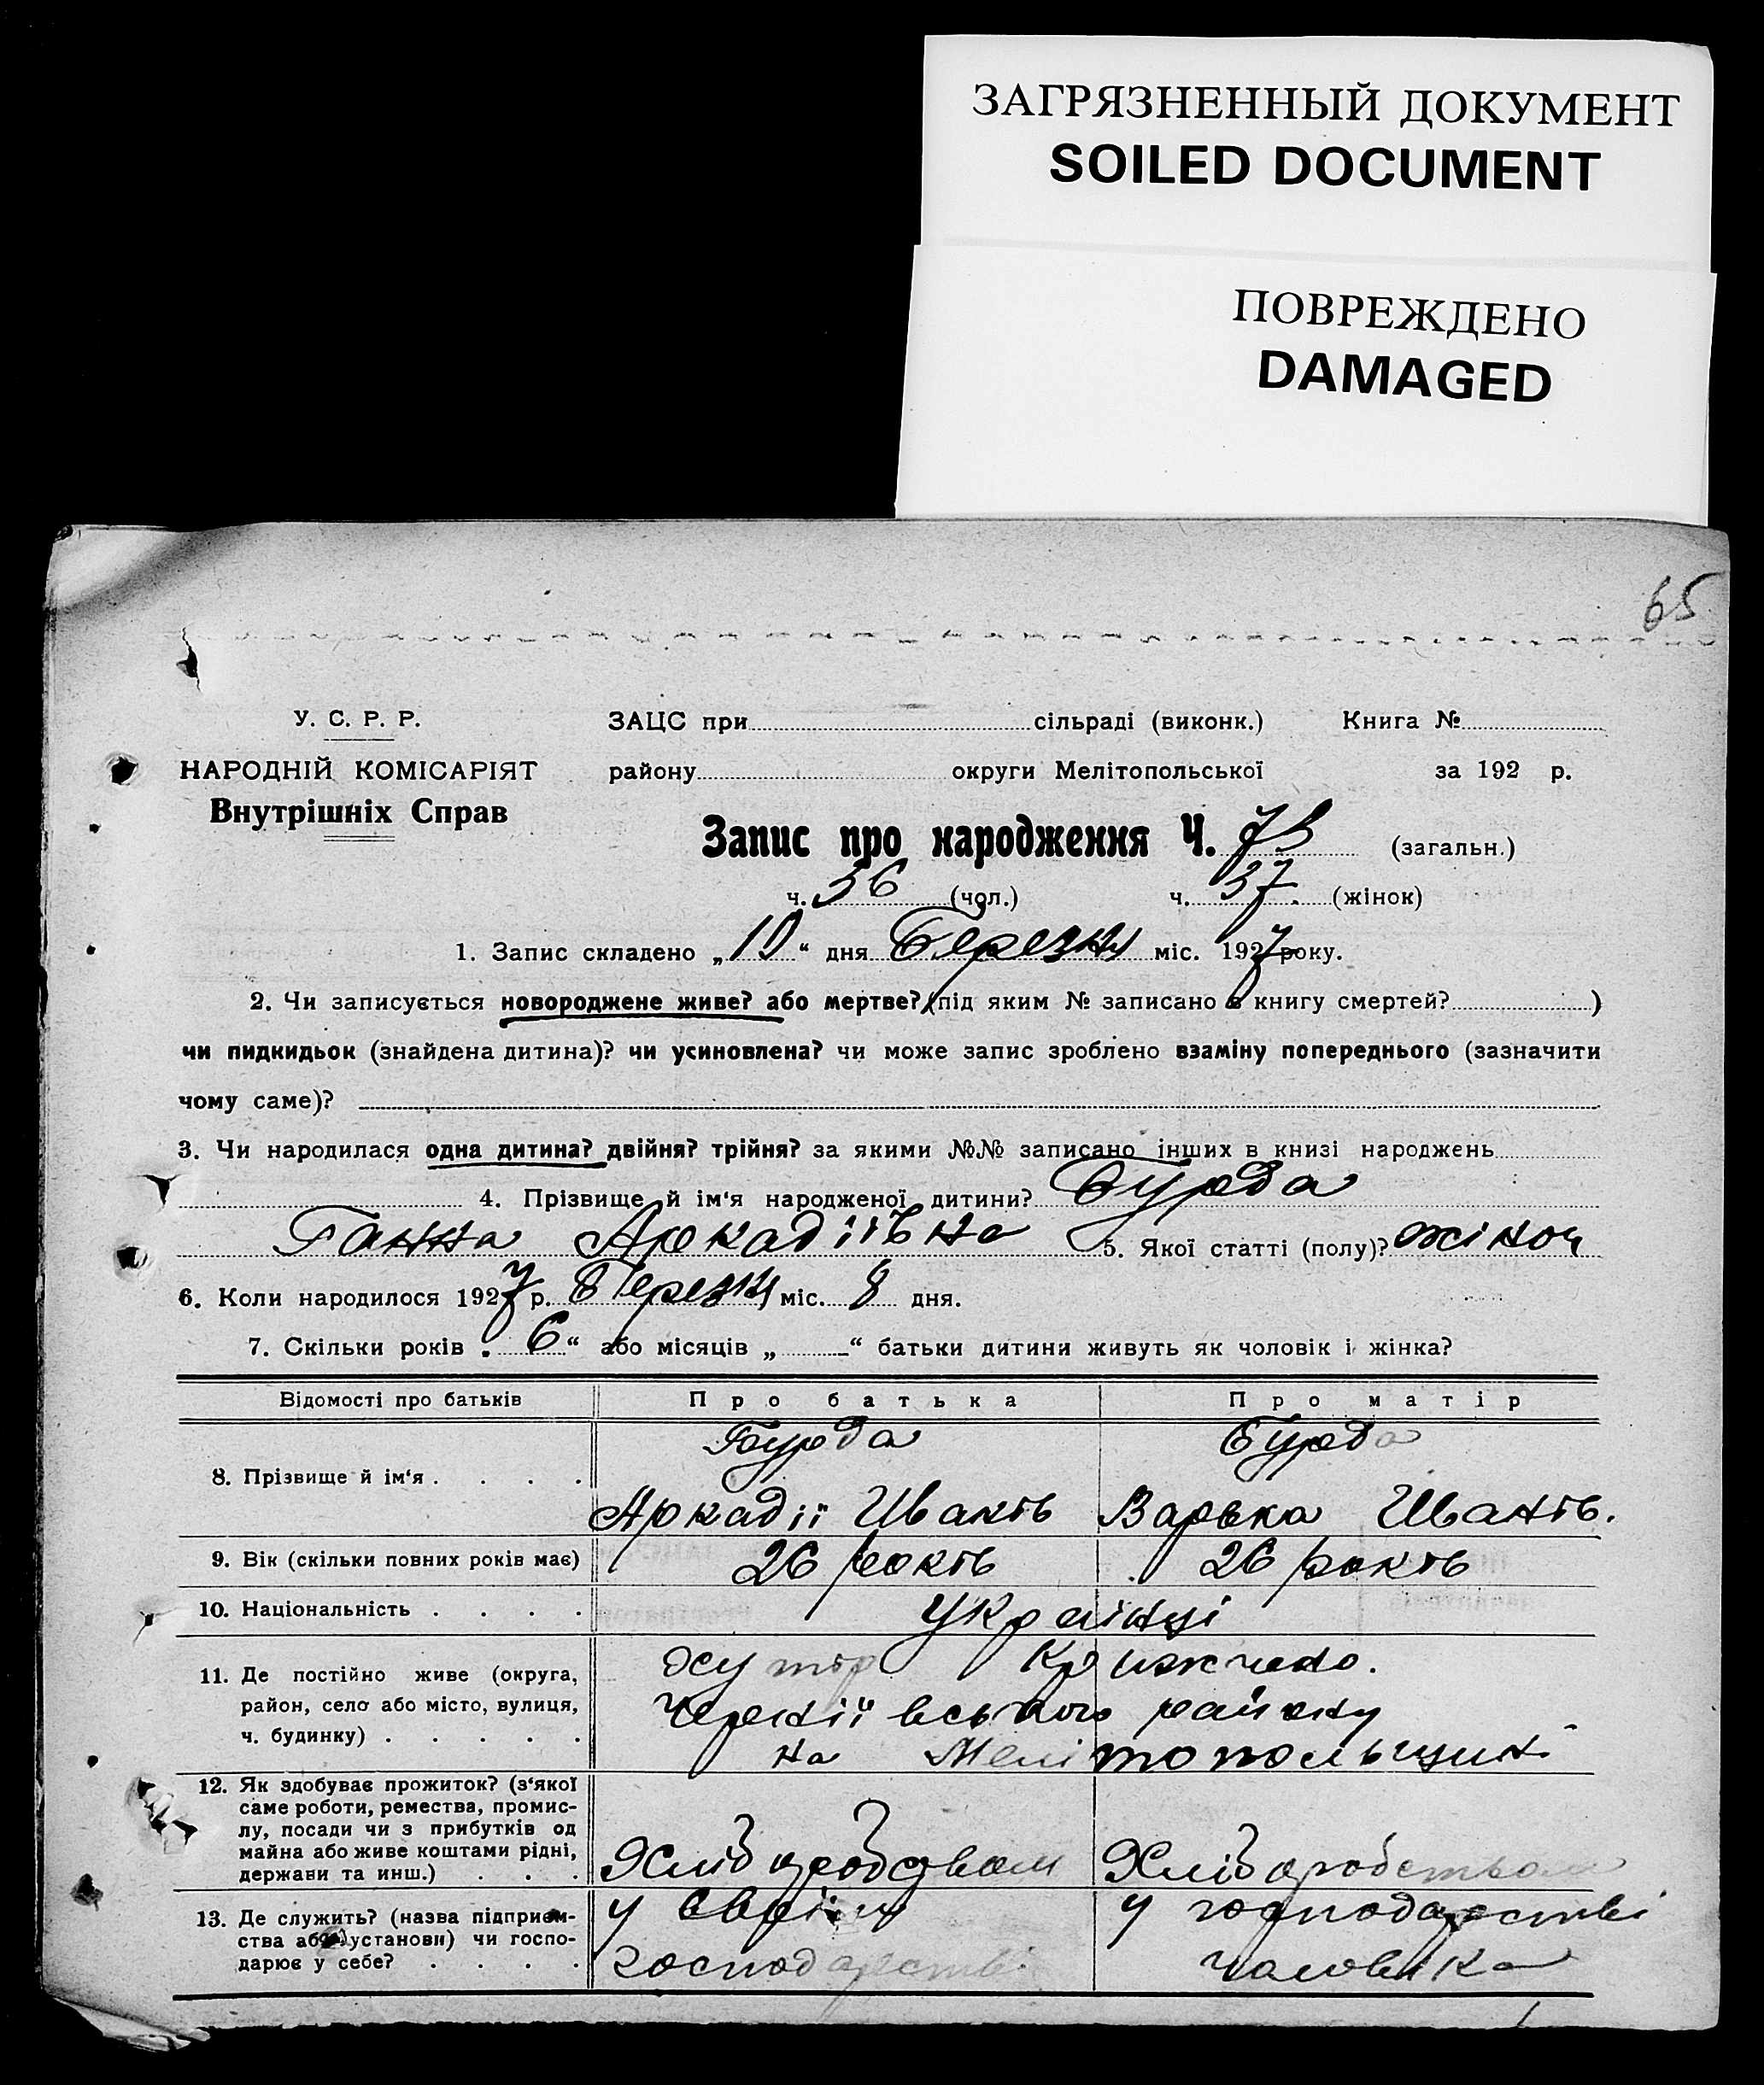 ЗАГРЯЗНЕННЫЙ ДОКУМЕНТ
SOILED DOCUMENT
ПОВРЕЖДЕНО
DAMAGED
65
У. С. Р. Р.
НАРОДНІЙ КОМІСАРІЯТ
Внутрішніх Справ
ЗАЦС при сільраді (виконк.) Книга №
району округи Мелітопольської за 192 р.
Запис про народження Ч. 73 (загальн.)
ч. 36 (чол.) ч. 37. (жінок)
1. Запис складено „10“ дня Березня міс. 1927 року.
2. Чи записується новороджене живе? або мертве? (під яким № записано в книгу смертей? )
чи пидкидьок (знайдена дитина)? чи усиновлена? чи може запис зроблено взаміну попереднього (зазначити
чому саме)?
3. Чи народилася одна дитина? двійня? трійня? за якими №№ записано інших в книзі народжень
4. Прізвище й ім'я народженої дитини? Бурда
Ганна Аркадіївна 5. Якої статті (полу)? жіноч
6. Коли народилося 1927 р. Березня міс. 8 дня.
7. Скільки років „6“ або місяців „ “ батьки дитини живуть як чоловік і жінка?
Відомості про батьків Про батька Про матір
8. Прізвище й ім'я . . . . Бурда Бурда
Аркадіі Иванів Варька Иванів.
9. Вік (скільки повних років має) 26 років 26 років
10. Національність . . . . Українці
11. Де постійно живе (округа,
район, село або місто, вулиця,
ч. будинку) . . . . .
хутір
району
на Мелітопольщині
12. Як здобуває прожиток? (з'якої
саме роботи, ремества, промис-
лу, посади чи з прибутків од
майна або живе коштами рідні,
держави та инш.) . . .
Хліборобством Хліборобством
13. Де служить? (назва підприєм-
ства або установи) чи госпо-
дарює у себе? . . . .
у своїм у господарстві
господарстві чоловіка